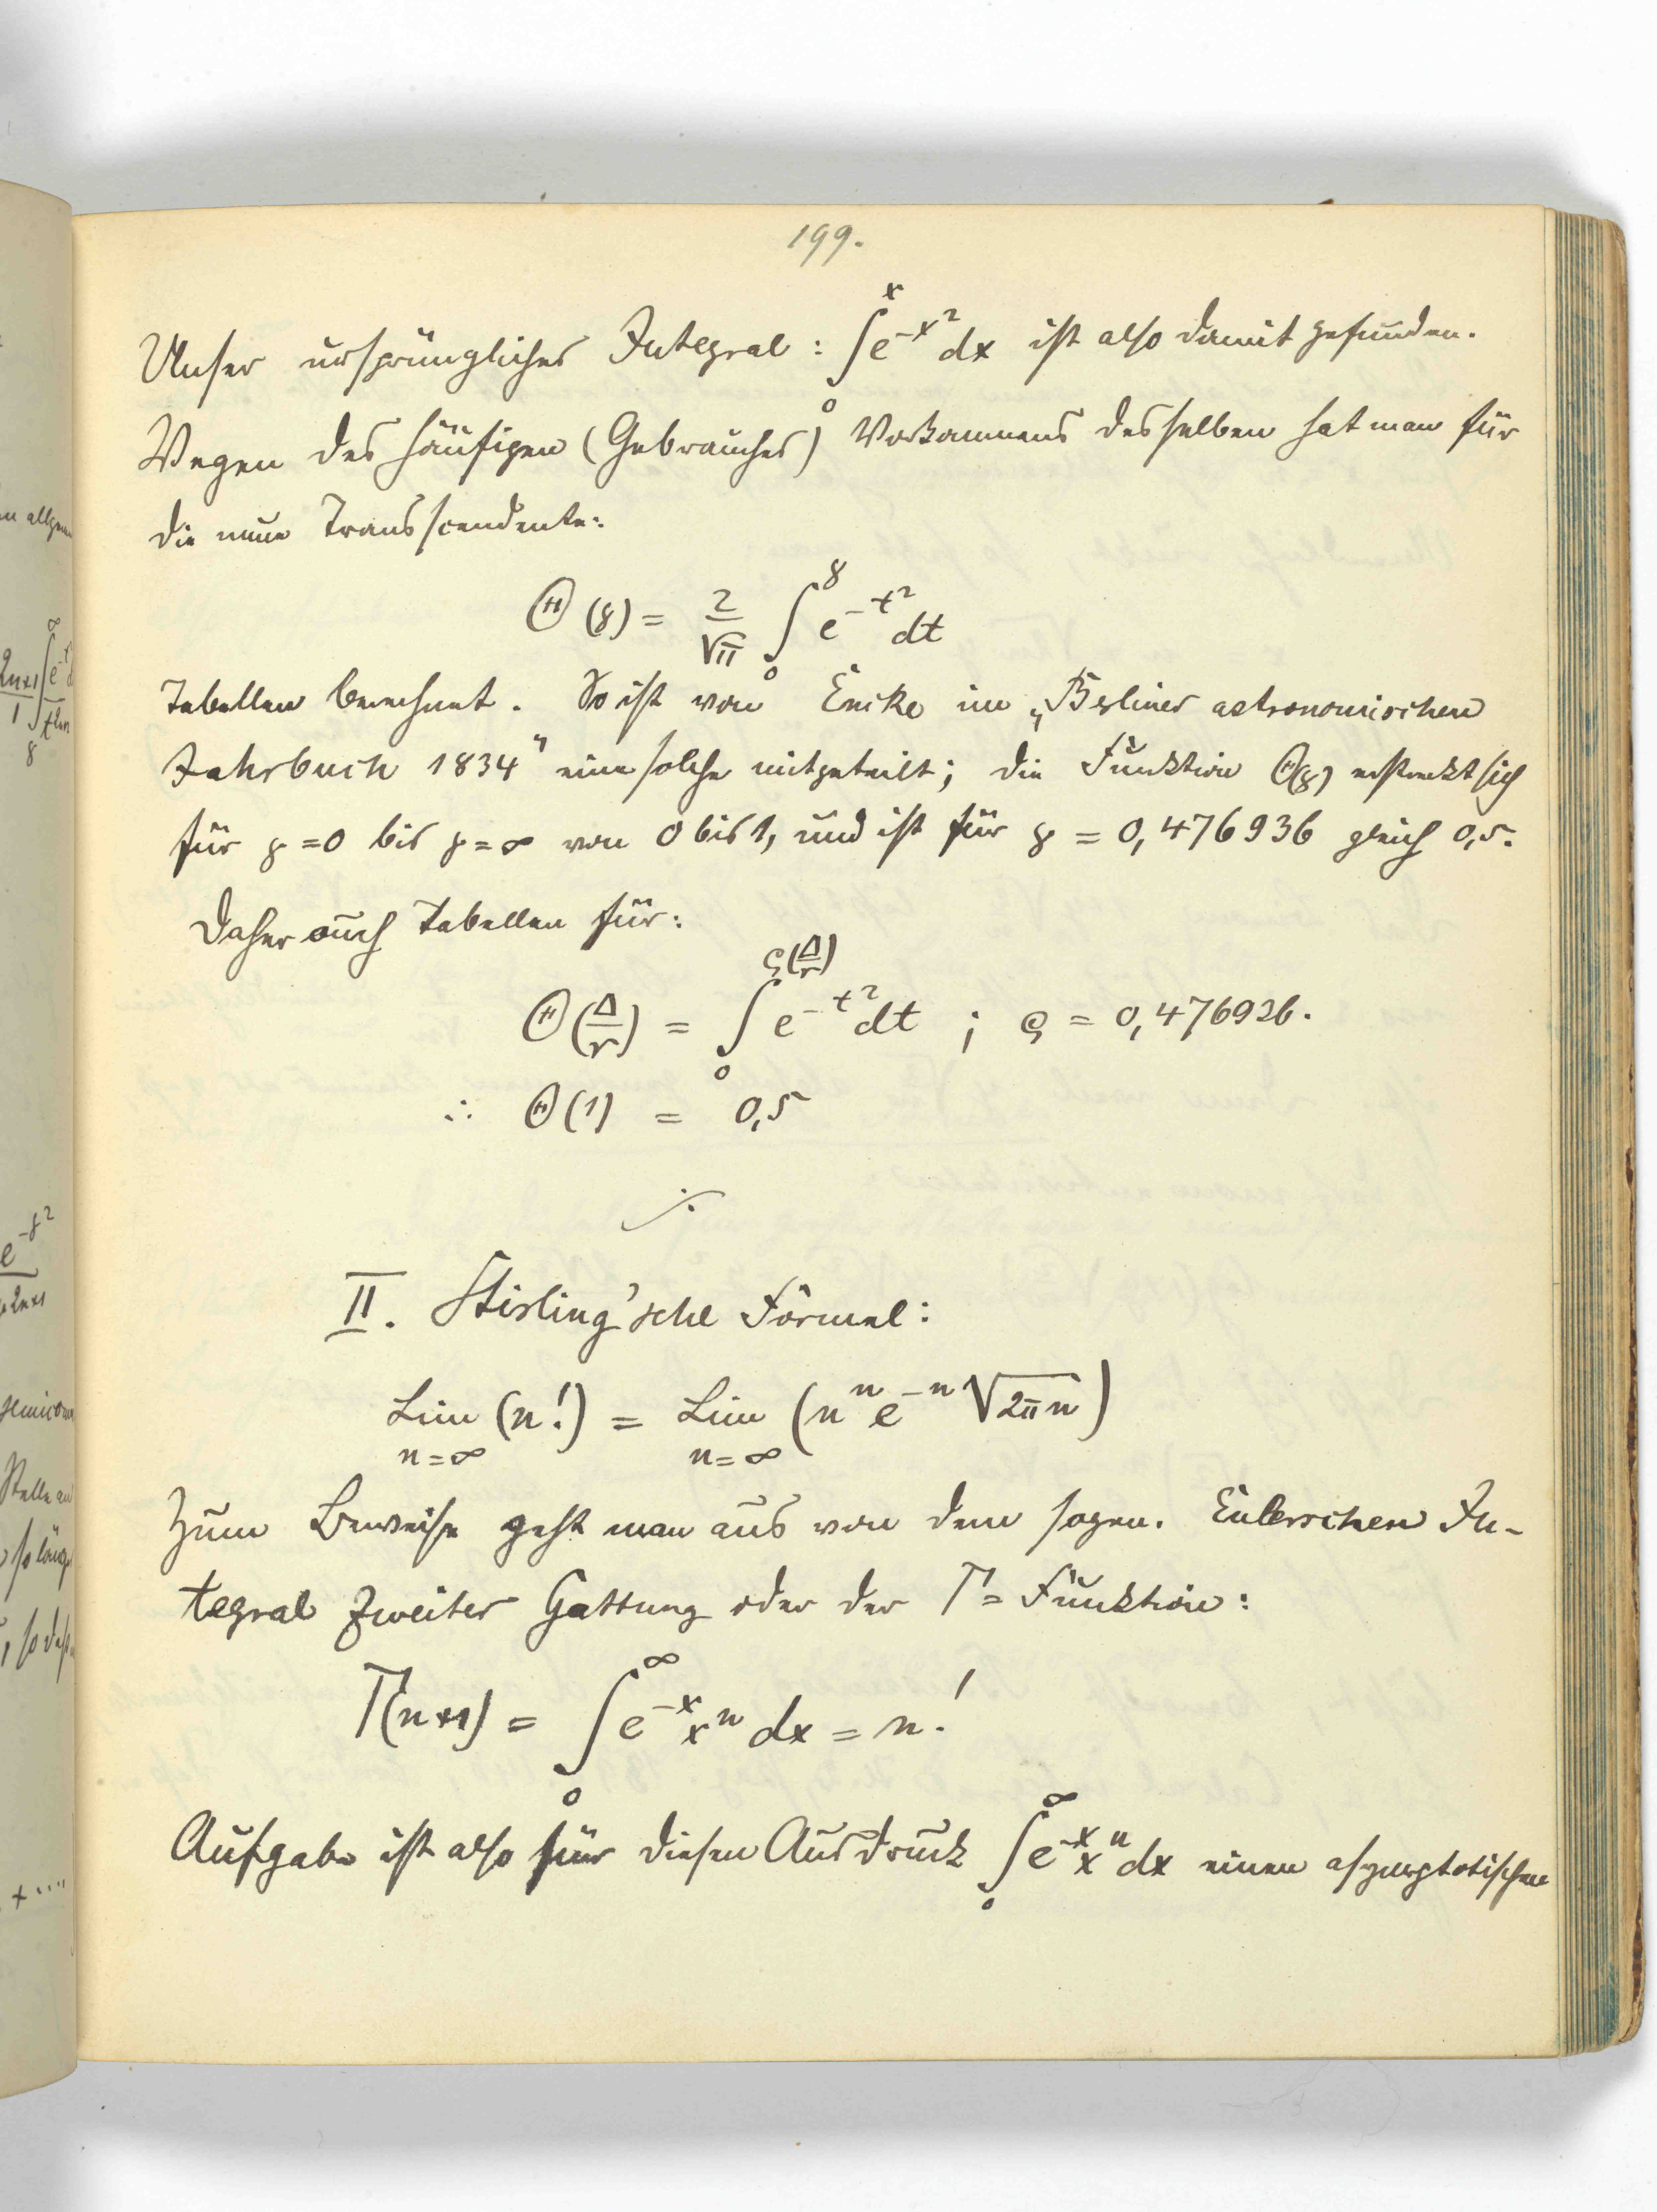 199.
Unser ursprüngliches Integral: ∫₀ˣ e^{-x²} dx ist also damit gefunden.
Wegen des häufigen (Gebrauches) Vorkommens desselben hat man für
die neue Transscendente:
Θ(γ) = 2/√π ∫₀^γ e^{-t²} dt
Tabellen berechnet. So ist von Encke im „Berliner astronomischen
Jahrbuch 1834" eine solche mitgeteilt; die Funktion Θ(γ) erstreckt sich
für γ = 0 bis γ = ∞ von 0 bis 1, und ist für γ = 0,476936 gleich 0,5.
Daher auch Tabellen für:
Θ(Δ/r) = ∫₀^{ρ(Δ/r)} e^{-t²} dt ; ρ = 0,476936.
∴ Θ(1) = 0,5
II. Stirling'sche Formel:
Lim (n!) = Lim (nⁿ e^{-n} √2πn)
n=∞ n=∞
Zum Beweise geht man aus von dem sogen. Eulerschen In-
tegral zweiter Gattung oder der Γ=Funktion:
Γ(n+1) = ∫₀^∞ e^{-x} xⁿ dx = n!
Aufgabe ist also für diesen Ausdruck ∫₀^∞ e^{-x} xⁿ dx einen asymptotischen
n allgem
2n+1
∞
8
e^{-γ²}
2n+1
semicon
Stelle an
so lang
, so daß
+ ....